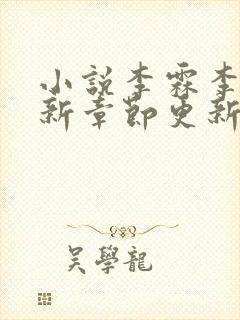 小說李霖李
新章節更新
吳學龍